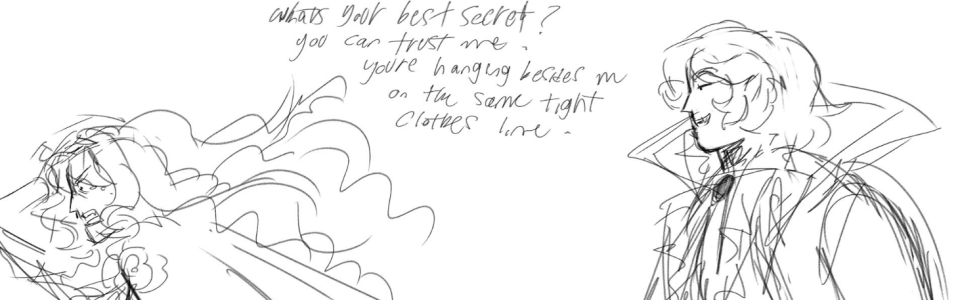 whats your best secret?
you can trust me.
you're hanging besides me
on the same tight
clothes line.